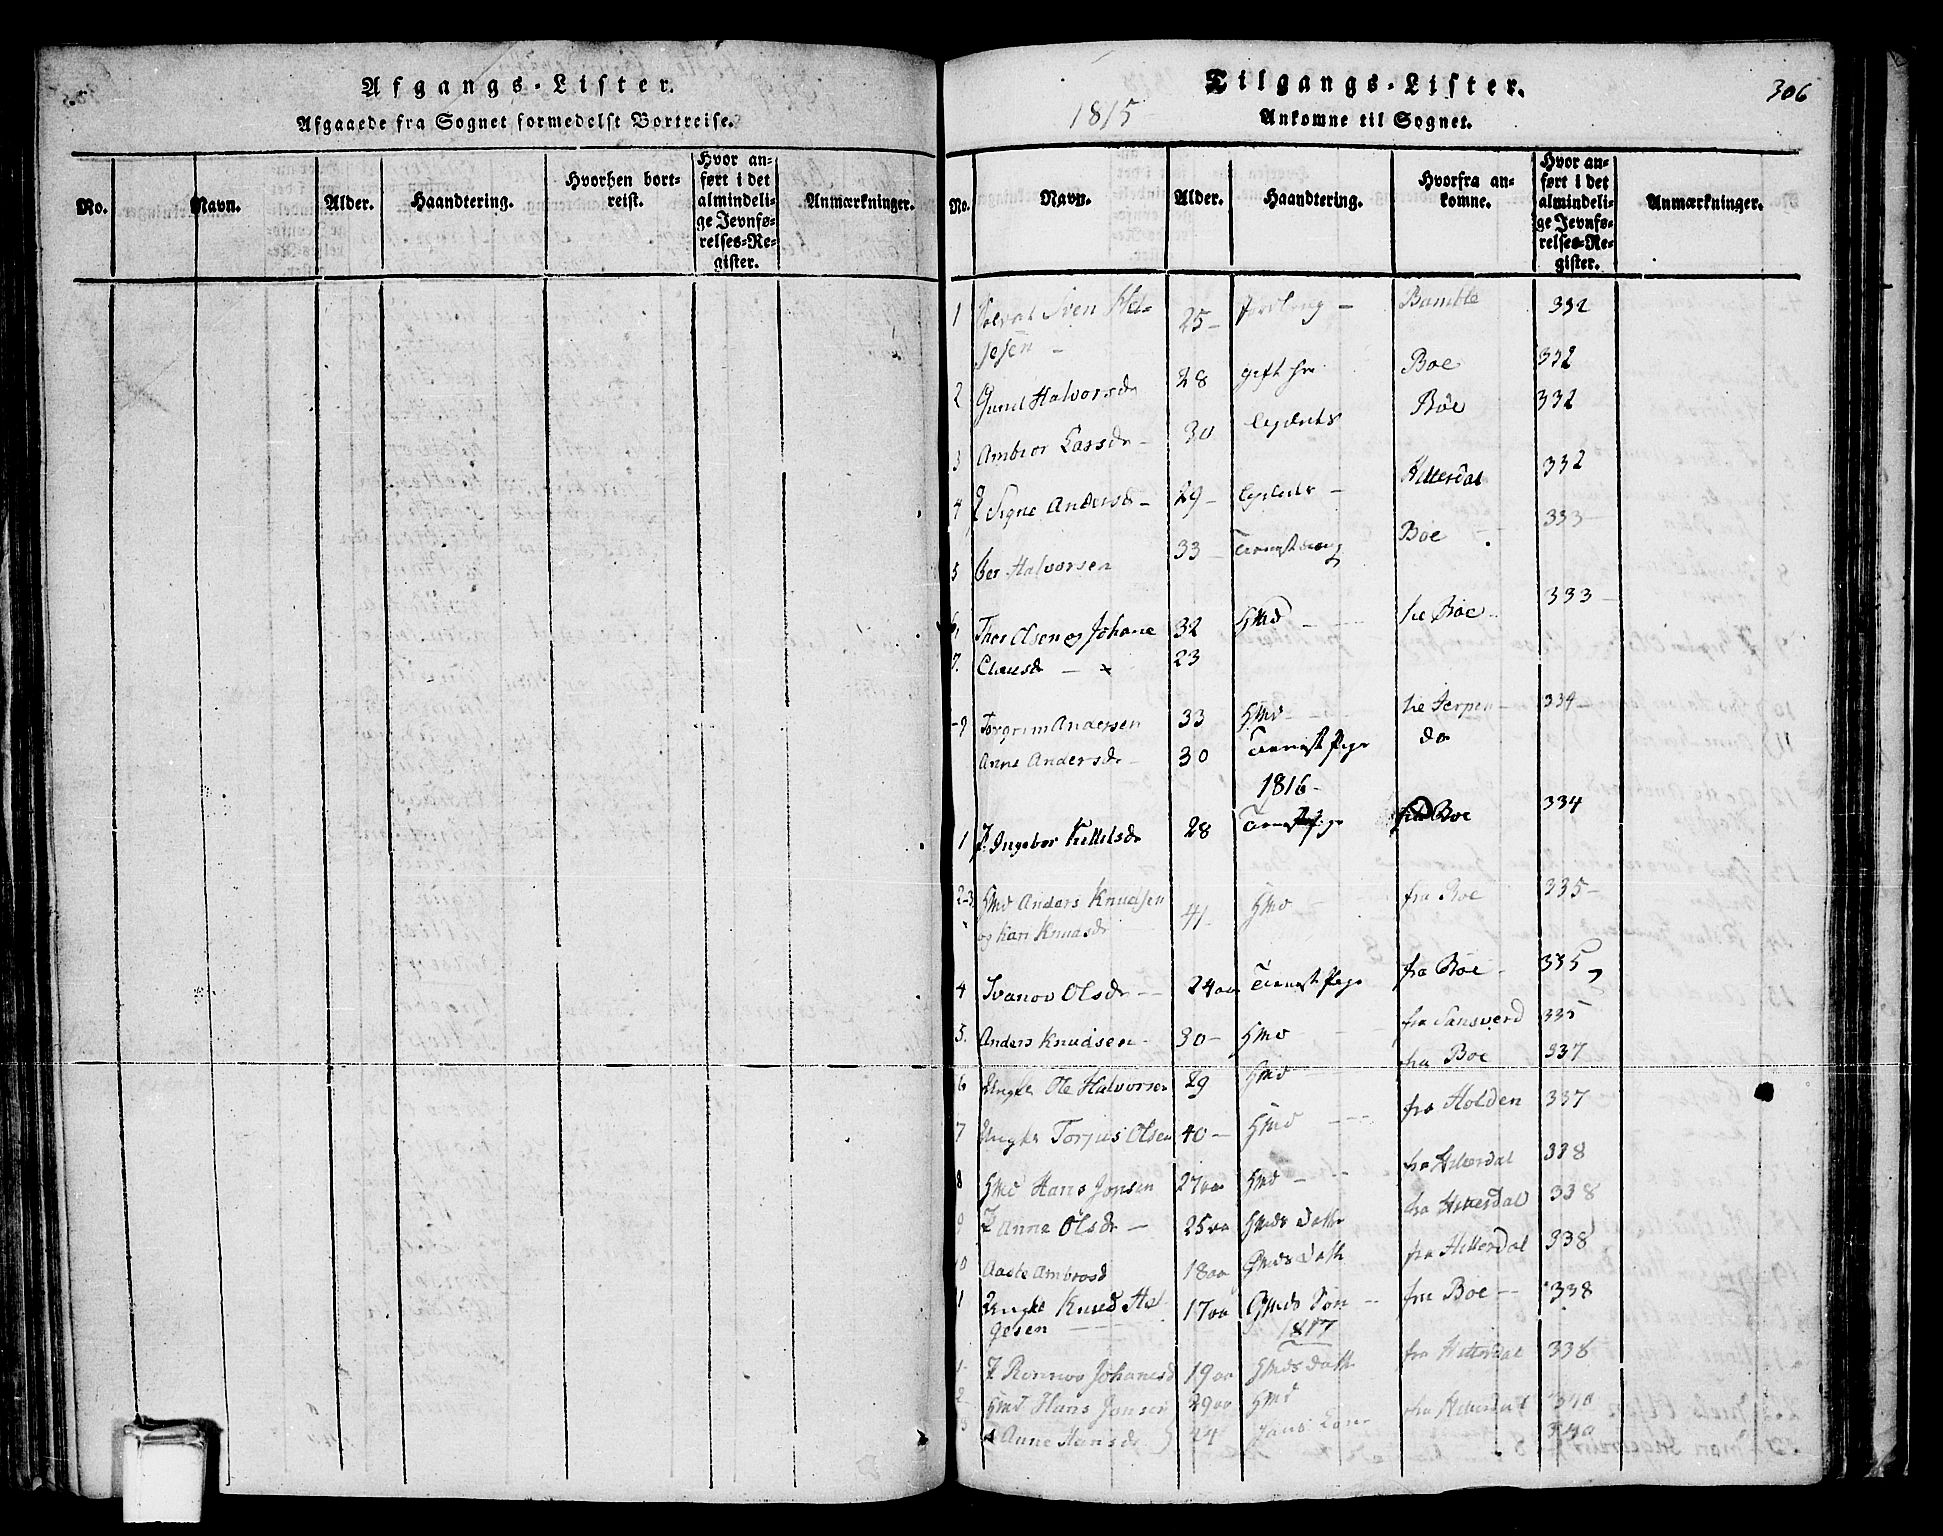 Afgangs-Lister.
Afgaaede fra Sognet formedelst Bortreise.
No. Navn. Alder. Haandtering. Hvorhen bortreist. Hvor anført i det almindelige Jevnførelses-Register. Anmærkninger.
Tilgangs-Lister.
306
1815
Ankomne til Sognet.
No. Navn. Alder. Haandtering. Hvorfra ankomne. Hvor anført i det almindelige Jevnførelses-Register. Anmærkninger.
1 Sven Hel- 25 - Bamble 332
gesen -
2 Gunil Halvorsdr 28 gift Boe 332
3 Ambior Larsdr - 30 Boe 332
4 Signe Andersdr - 29 - Hitterdal 332
5 Per Halvorsen 33 - Boe 333 -
6 Thor Olsen og Johane 32 HMd Boe 333 -
7. Clausdr - 23
-9 Torgrim Andersen 33 HMd 334 -
Anne Andersdr - 30 Tienest Pige do
1816 -
1 P. Ingebor Kittelsdr 28 Tienestpige fra Boe 334
2-3 HMd Anders Knudsen 41 - HMd - fra Boe 335 -
og Kari Knudsdr
4 Ivanov Olsdr - 24 aa Tienest Pige fra Boe - 335
5. Anders Knudsen - 30 - HMd fra Sansverd 335
6 Ungk. Ole Halvorsen 29 HMd fra Boe 337
7 Ungk. Torjus Olsen 40 - HMd fra Holden 337
8 HMd Hans Jonsen 27 aa HMd - fra Hitterdal 338
9 P Anne Olsdr - 25 aa HMds Datter fra Hitterdal 338
10 Aaste Ambrosd 18 aa HMds Datt fra Hitterdal 338
1 Ungk. Knud Hel- 17 aa HMds Søn fra Boe - 338
gesen
1817
1 P Ronnov Johanesd 19 aa HMds Datt fra Hitterdal 338
2 HMd Hans Jonsen 29 aa HMd fra Hitterdal 340
3 Anne Hansdr 24 340